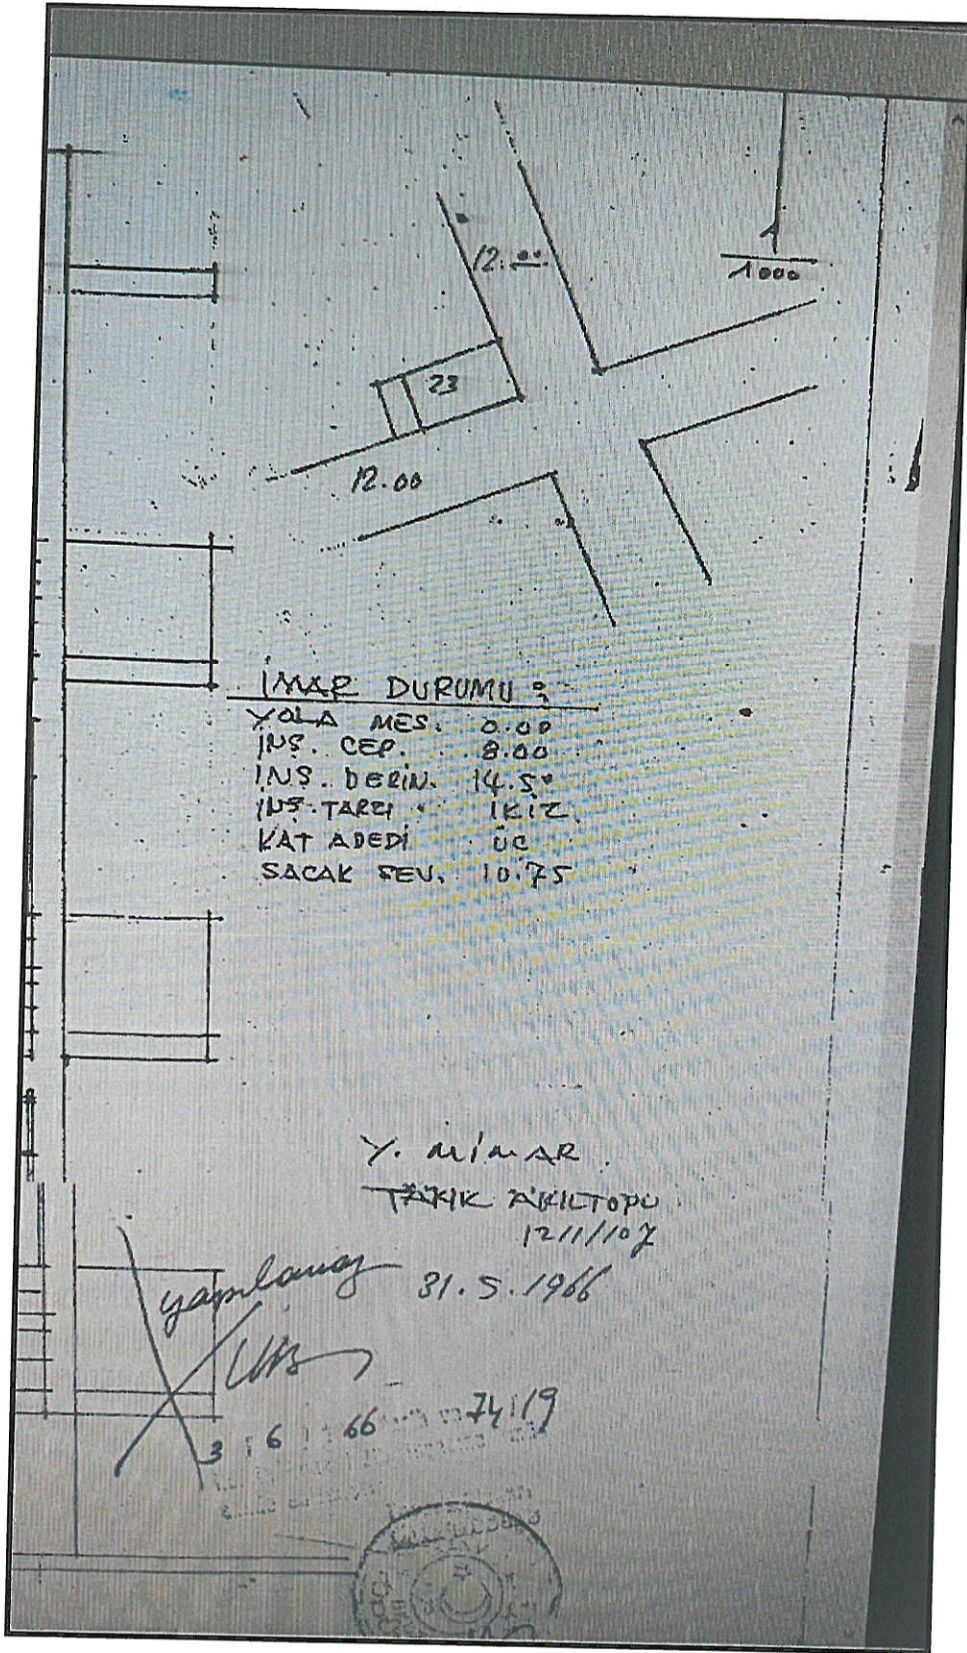 12.00
1
1000
23
12.00
İMAR DURUMU :
YOLA MES. 0.00
İNŞ. CEP. 8.00
İNŞ. DERİN. 14.50
İNŞ. TARZI İKİZ
KAT ADEDİ ÜC
SACAK SEV. 10.75
Y. MİMAR
TARIK AKILTOPU
1211/107
31.5.1966
yapılamaz
3 6 66 74119